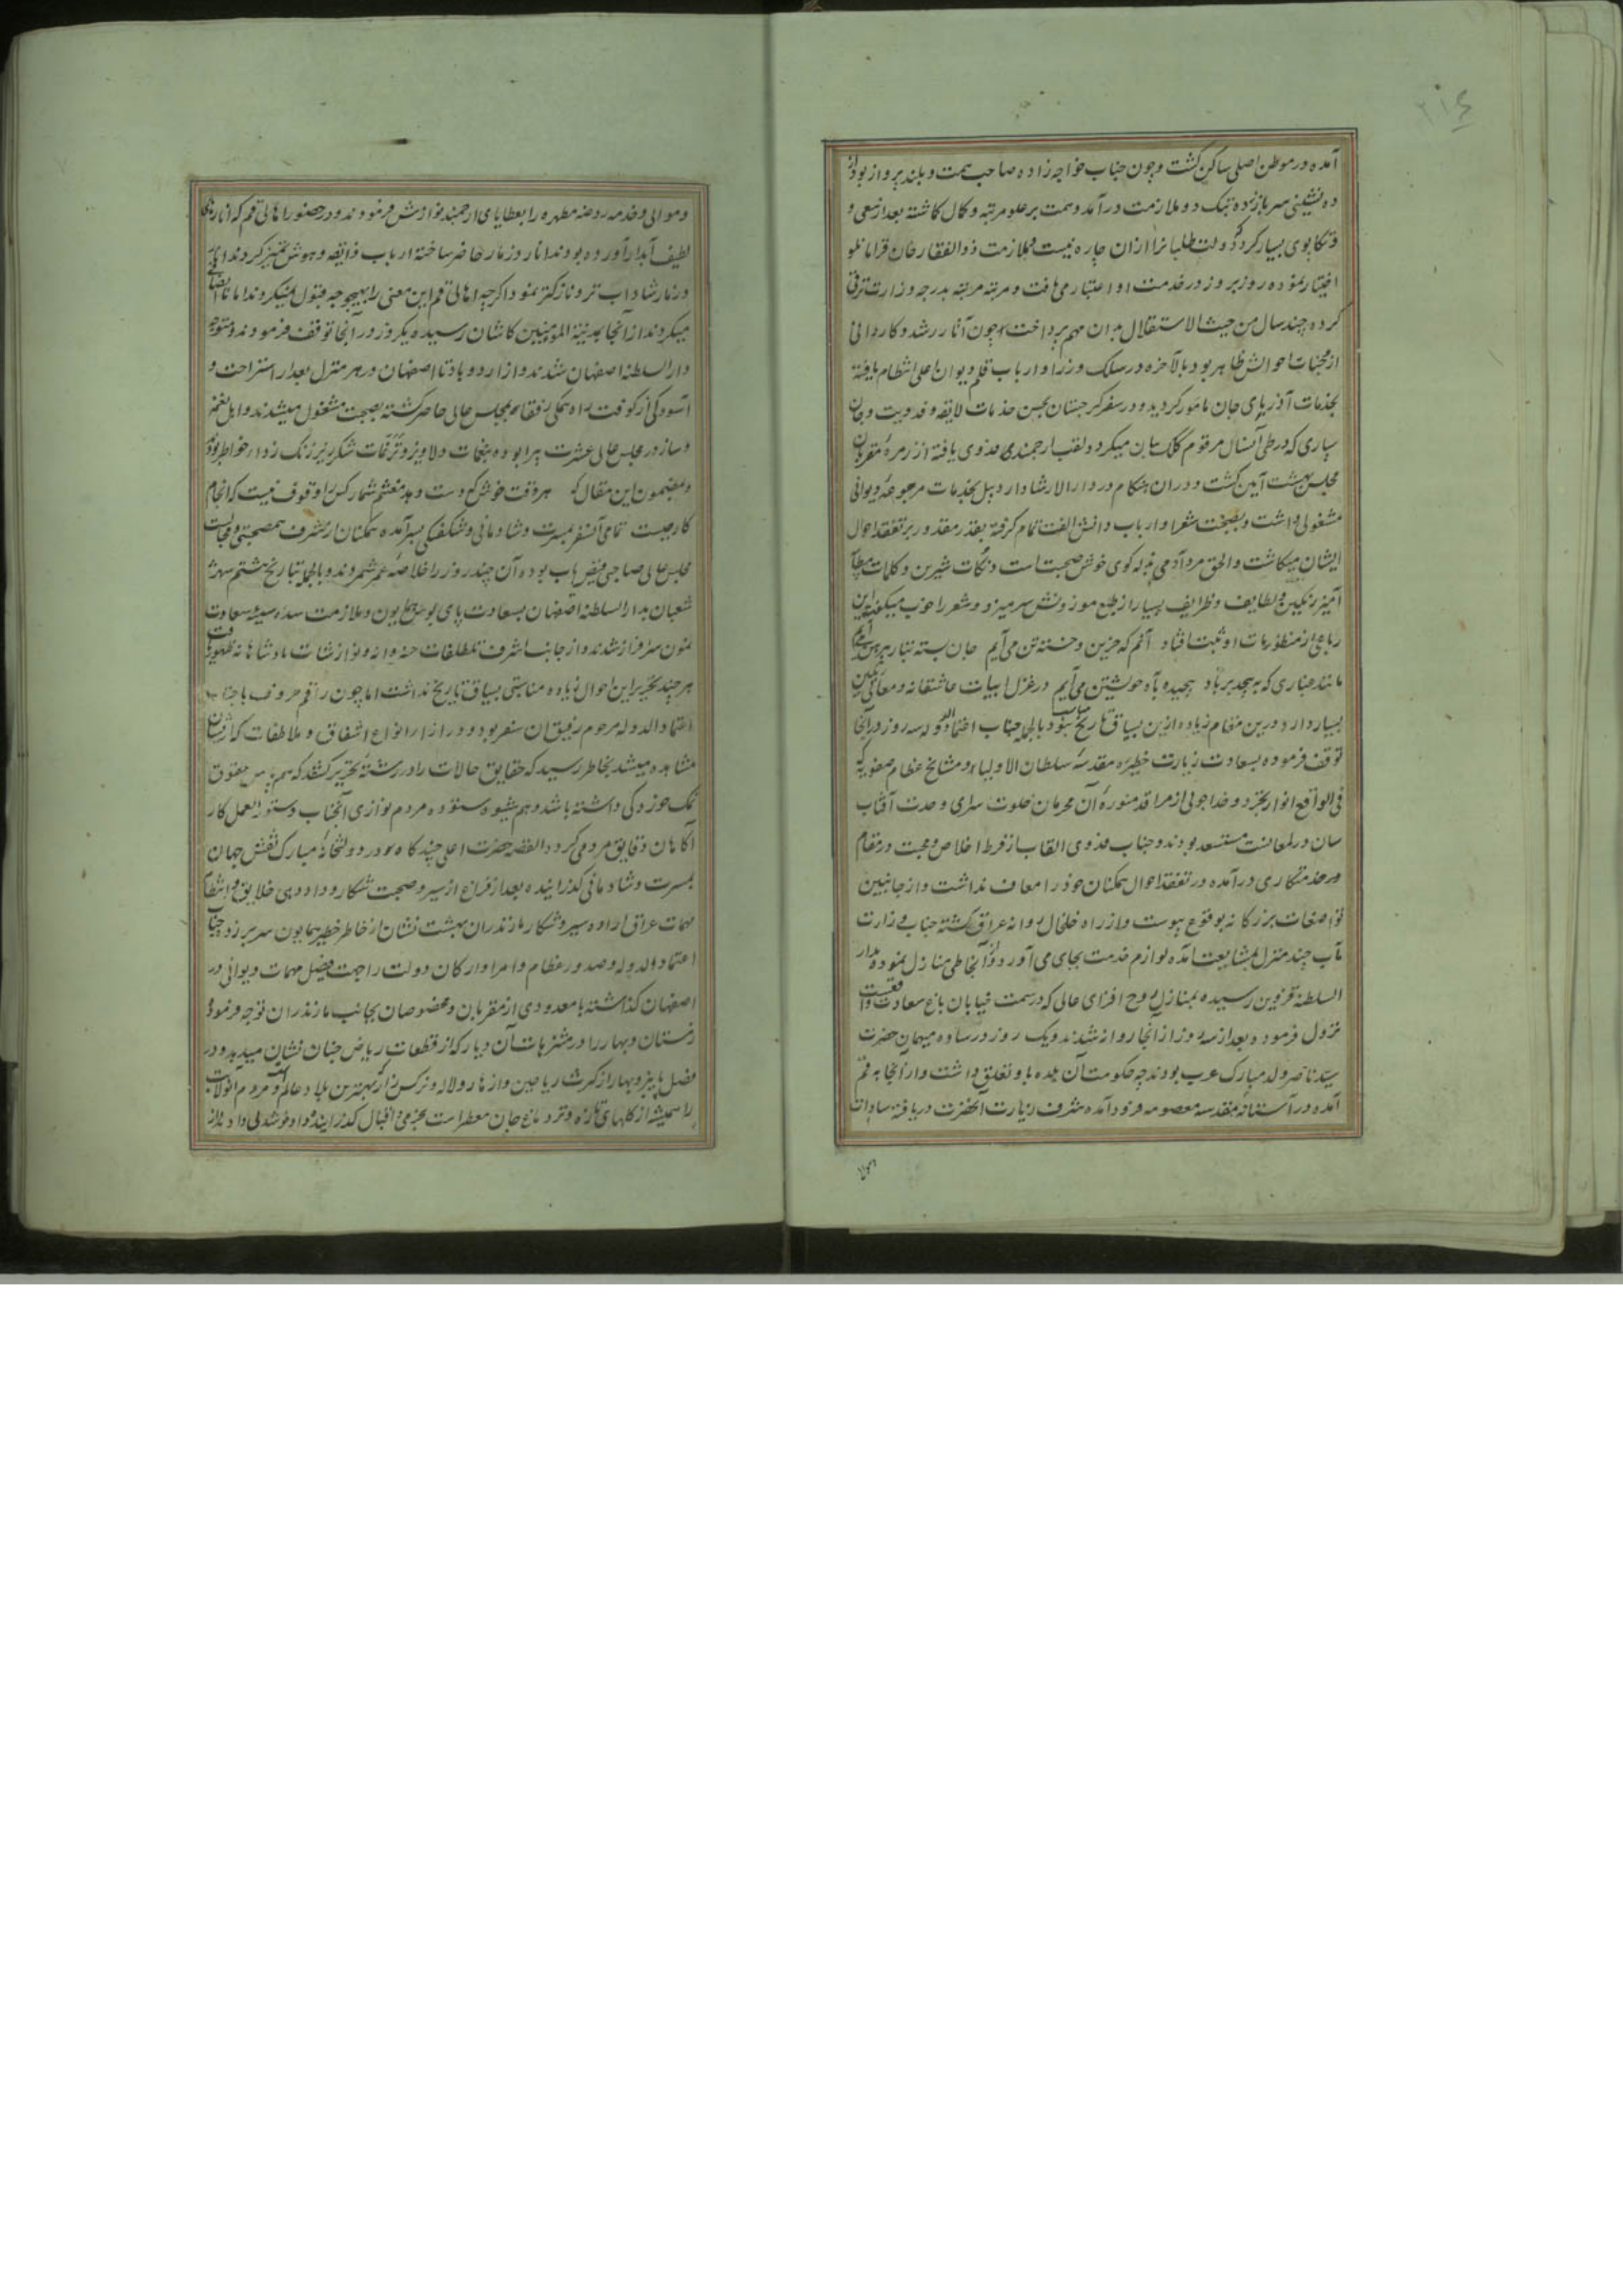 ۲۱۴
آمده در موطن اصلی ساکن کشت و چون جناب خواجه زاده صاحب همت و بلند پرواز بود از
ده نشینی سر باز زده بتک دو ملازمت درآمد و همت بر علو مرتبه و کمال کاشته بعد از سعی و
تکاپوی بسیار که دولت طلبانرا از ان چاره نیست بملازمت ذوالفقار خان قرامانلو
اختیار نموده روز بروز در خدمت او اعتبار می یافت و مرتبه مرتبه بدرجه وزارت ترقی
کرده چند سال من حیث الاستقلال بدان مهم پرداخت چون آثار رشد و کاردانی
از وجنات احوالش ظاهر بود بالآخره در سلک وزرا و ارباب قلم دیوان اعلی انتظام یافته
بخدمات آذربایجان مامور کردید و در سفر کرجستان بحسن خدمات لایقه و فدویت و جان
سپاری که در طی آنسال مرقوم کلک بیان میکردد لقب ارجمندی فدوی یافته از زمره مقربان
مجلس بهشت آیین کشت و در ان هنکام در دار الارشاد اردبیل بخدمات مرجوعه دیوانی
مشغولی داشت و بصحبت شعرا و ارباب دانش الفت تمام کرفته بقدر مقدور بر تفقد احوال
ایشان میکاشت و الحق مرد آدمی بذله کوی خوش صحبت است و نکات شیرین و کلمات
آمیز رنکین و لطایف و ظرایف بسیار از طبع موزونش سر میزد و شعر را خوب میکفت این
رباعی از منظومات او ثبت افتاد آنم که حزین و خسته تن می آیم جان بسته بتار پیرهن می آیم
مانند غباری که بپیچد بر باد پیچیده بآه خویشتن می آیم در غزل ابیات عاشقانه و معانی رنکین
بسیار دارد درین مقام زیاده ازین بسیاق تاریخ مناسب نبود بالجمله جناب اعتماد الدوله سه روز در آنجا
توقف فرموده بسعادت زیارت حظیره مقدسه سلطان الاولیا و مشایخ عظام صفویه که
فی الواقع انوار تجرد و خدا جویی از مراقد منوره آن محرمان خلوت سرای وحدت آفتاب
سان در لمعانست مستسعد بودند و جناب فدوی القاب از فرط اخلاص و محبت در مقام
خدمتکاری درآمده در تفقد احوال همکنان خود را معاف نداشت و از جانبین
تواضعات بزرکانه بوقوع پیوست و از راه خلخال روانه عراق کشته جناب وزارت
مآب چند منزل بمشایعت آمده لوازم خدمت بجای می آورد و از آنجا طی منازل نموده بدار
السلطنه قزوین رسیده بمنازل روح افزای عالی که در سمت خیابان باغ سعادت واقعست
نزول فرمود و بعد از سه روز از آنجا روانه شدند و یک روز در ساوه میهمان حضرت
سید ناصر ولد مبارک عرب بودند چه حکومت آن بلده باو تعلق داشت و از آنجا به قم
آمده در آستانه مقدسه معصومه فرود آمده شرف زیارت آنحضرت دریافته سادات
و موالی و خدمه روضه مطهره را بعطایای ارجمند نوازش فرمودند و در حضور اهالی قم که انارهای
لطیف آبدار آورده بودند انار وزمار حاضر ساخته ارباب ذایقه و هوش تمیز کردند
وزمار شاداب تر و نازکتر نمود اکرچه اهالی قم این معنی را بهیچوجه قبول نمیکردند اما
میکردند از آنجا بمدینة المؤمنین کاشان رسیده یکروز در آنجا توقف فرمودند و متوجه
دار السلطنه اصفهان شدند و از اردوباد تا اصفهان در هر منزل بعد از استراحت و
آسودکی از کوفت راه همکی رفقا بمجلس عالی حاضر کشته بصحبت مشغول میشدند و اهل نغمه
و ساز در مجلس عالی عشرت پیرا بوده بنغمات دلاویز و ترنمات شکر ریز زنک زدای خواطر بودند
و بمضمون این مقال که هر وقت خوش که دست دهد مغتنم شمار کس را وقوف نیست که انجام
کار چیست تمامی آنسفر بمسرت و شادمانی و شکفتکی بسر آمده همکنان از شرف همصحبتی و مجالست
مجلس عالی صاحبی فیض یاب بوده آن چند روز را خلاصه عمر شمردند و بالجمله بتاریخ هشتم شهر
شعبان بدار السلطنه اصفهان بسعادت پای بوس همایون و ملازمت سده سنیه سعادت
نمون سرافراز شدند و از جانب اشرف تلطلفات خسروانه و نوازشات پادشاهانه
هر چند تحریر این احوال زیاده مناسبتی بسیاق تاریخ نداشت اما چون راقم حروف با جناب
اعتماد الدوله مرحوم رفیق ان سفر بود و در ازار انواع اشفاق و ملاطفات که از ایشان
مشاهده میشد بخاطر رسید که حقایق حالات را در رشته تحریر کشد که هم پاس حقوق
نمک خوردکی داشته باشد و هم شیوه ستوده مردم نوازی آنجناب دستور العمل کار
آکاهان دقایق مردمی کردد القصه حضرت اعلی چند کاه در دولتخانه مبارک نقش جهان
بمسرت و شادمانی کذرانیده بعد از فراغ از سیر و صحبت شکار و دادورسی خلایق و انتظام
مهمات عراق اراده سیر و شکار مازندران بهشت نشان از خاطر خطیر همایون سر بر زد و جناب
اعتماد الدوله و صدور عظام و امرا و ارکان دولت را جهت فیصل مهمات دیوانی در
اصفهان کذاشته با معدودی از مقربان و مخصوصان بجانب مازندران توجه فرمود و
زمستان و بهار را در متنزهات آن دیار که از قطعات ریاض جنان نشان میدهد و در
فصل پاییز و بهار از کثرت ریاحین و ازهار و لاله و نرکس زار بهترین بلاد عالم و مردم آن ولایت
را همیشه از کلهای تازه و تر دماغ جان معطر است بخرمی و اقبال کذرانیده داد خوشدلی دادند از